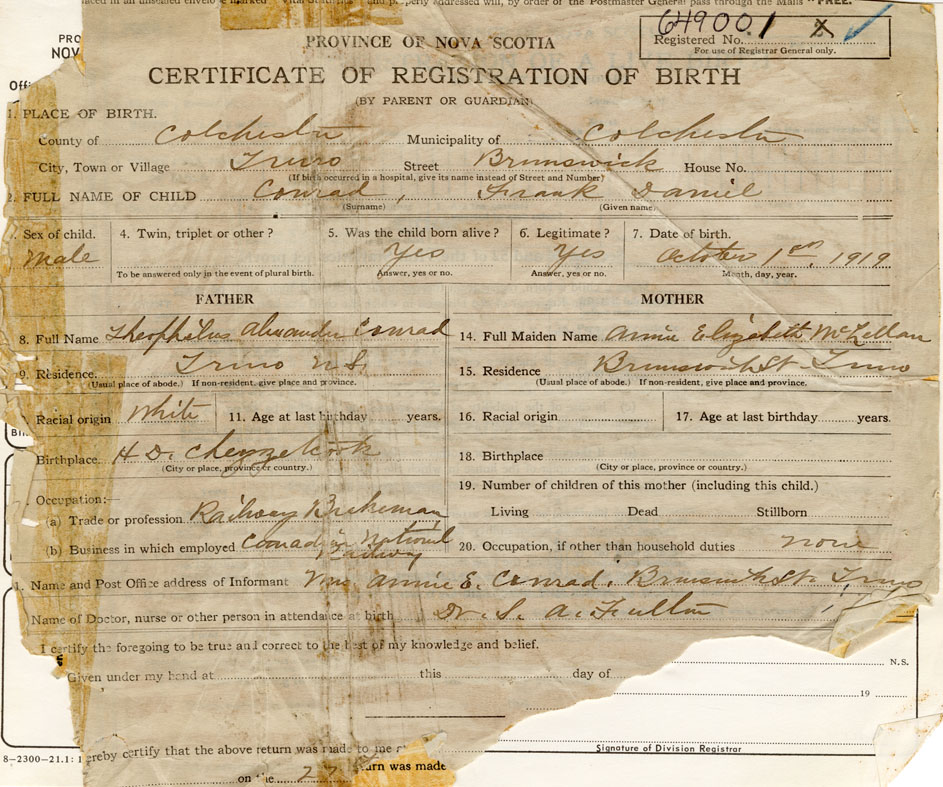 placed in an unsealed envelope marked "Vital Statistics" and properly addressed will, by order of the Postmaster General pass through the Mails "FREE."
649001
PRO
NOV
PROVINCE OF NOVA SCOTIA
Registered No.
For use of Registrar General only.
CERTIFICATE OF REGISTRATION OF BIRTH
Offi
(BY PARENT OR GUARDIAN)
1. PLACE OF BIRTH.
County of Colchester Municipality of Colchester
City, Town or Village Truro Street Brunswick House No.
(If birth occurred in a hospital, give its name instead of Street and Number)
2. FULL NAME OF CHILD Conrad, Frank Daniel
(Surname) (Given name)
Sex of child. 4. Twin, triplet or other? 5. Was the child born alive? 6. Legitimate? 7. Date of birth.
Male Yes Yes October 1st, 1919
To be answered only in the event of plural birth. Answer, yes or no. Answer, yes or no. Month, day, year.
FATHER MOTHER
8. Full Name Theophilus Alexander Conrad 14. Full Maiden Name Annie Elizabeth McLellan
9. Residence Truro N.S. 15. Residence Brunswick St. Truro
(Usual place of abode.) If non-resident, give place and province. (Usual place of abode.) If non-resident, give place and province.
Racial origin White 11. Age at last birthday years. 16. Racial origin 17. Age at last birthday years.
Birthplace H D. Chezzetcook 18. Birthplace
(City or place, province or country.) (City or place, province or country.)
Occupation:— 19. Number of children of this mother (including this child.)
(a) Trade or profession Railway Brakeman Living Dead Stillborn
(b) Business in which employed Canadian National Railway 20. Occupation, if other than household duties none
Name and Post Office address of Informant Mrs. Annie E. Conrad, Brunswick St. Truro
Name of Doctor, nurse or other person in attendance at birth Dr. S. A. Fulton
I certify the foregoing to be true and correct to the best of my knowledge and belief.
N.S.
Given under my hand at this day of
19
hereby certify that the above return was made to me
Signature of Division Registrar
8–2300–21.1: 1
on the 27 urn was made